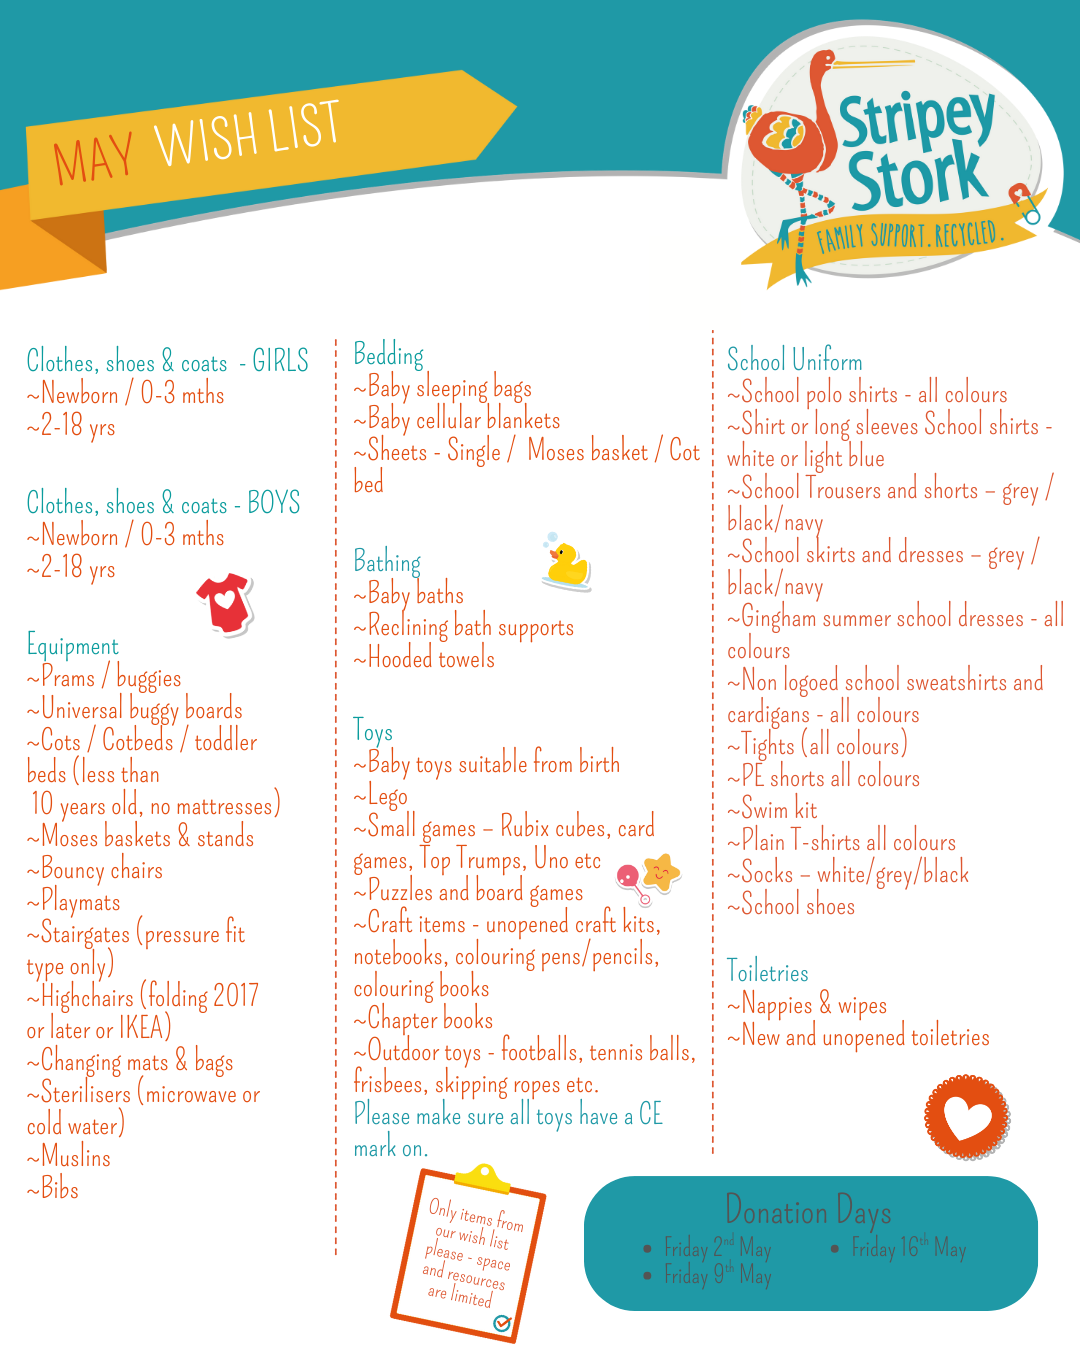 MAY WISH LIST
Stripey
Stork
FAMILY SUPPORT. RECYCLED.
Clothes, shoes & coats - GIRLS
~Newborn / 0-3 mths
~2-18 yrs
Clothes, shoes & coats - BOYS
~Newborn / 0-3 mths
~2-18 yrs
Equipment
~Prams / buggies
~Universal buggy boards
~Cots / Cotbeds / toddler
beds (less than
10 years old, no mattresses)
~Moses baskets & stands
~Bouncy chairs
~Playmats
~Stairgates (pressure fit
type only)
~Highchairs (folding 2017
or later or IKEA)
~Changing mats & bags
~Sterilisers (microwave or
cold water)
~Muslins
~Bibs
Bedding
~Baby sleeping bags
~Baby cellular blankets
~Sheets - Single / Moses basket / Cot
bed
Bathing
~Baby baths
~Reclining bath supports
~Hooded towels
Toys
~Baby toys suitable from birth
~Lego
~Small games – Rubix cubes, card
games, Top Trumps, Uno etc
~Puzzles and board games
~Craft items - unopened craft kits,
notebooks, colouring pens/pencils,
colouring books
~Chapter books
~Outdoor toys - footballs, tennis balls,
frisbees, skipping ropes etc.
Please make sure all toys have a CE
mark on.
Only items from
our wish list
please - space
and resources
are limited
School Uniform
~School polo shirts - all colours
~Shirt or long sleeves School shirts -
white or light blue
~School Trousers and shorts – grey /
black/navy
~School skirts and dresses – grey /
black/navy
~Gingham summer school dresses - all
colours
~Non logoed school sweatshirts and
cardigans - all colours
~Tights (all colours)
~PE shorts all colours
~Swim kit
~Plain T-shirts all colours
~Socks – white/grey/black
~School shoes
Toiletries
~Nappies & wipes
~New and unopened toiletries
Donation Days
• Friday 2nd May
• Friday 9th May
• Friday 16th May